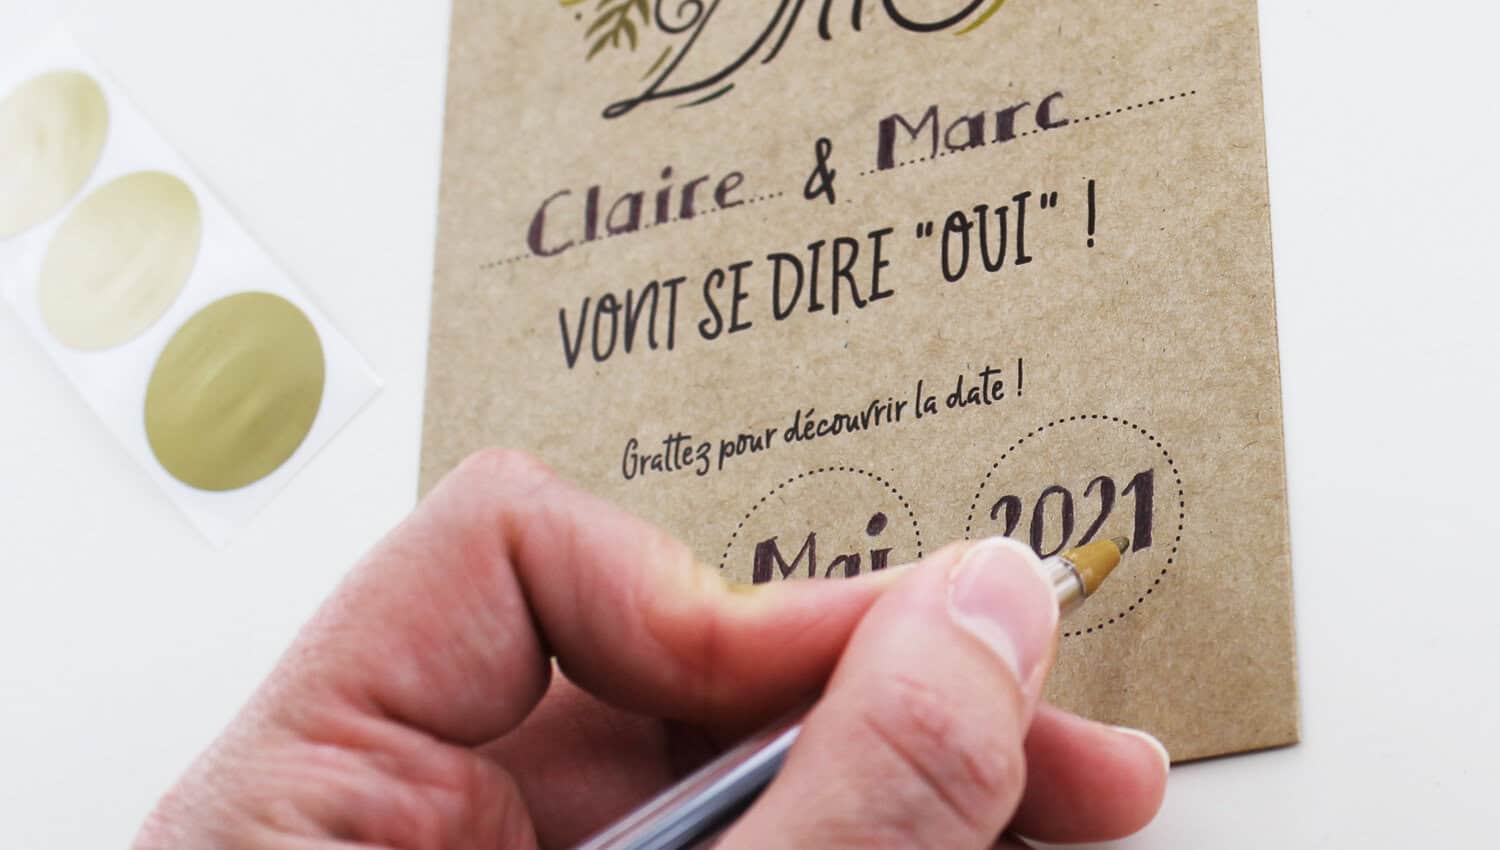 Claire & Marc
VONT SE DIRE "OUI" !
Grattez pour découvrir la date !
Mai 2021